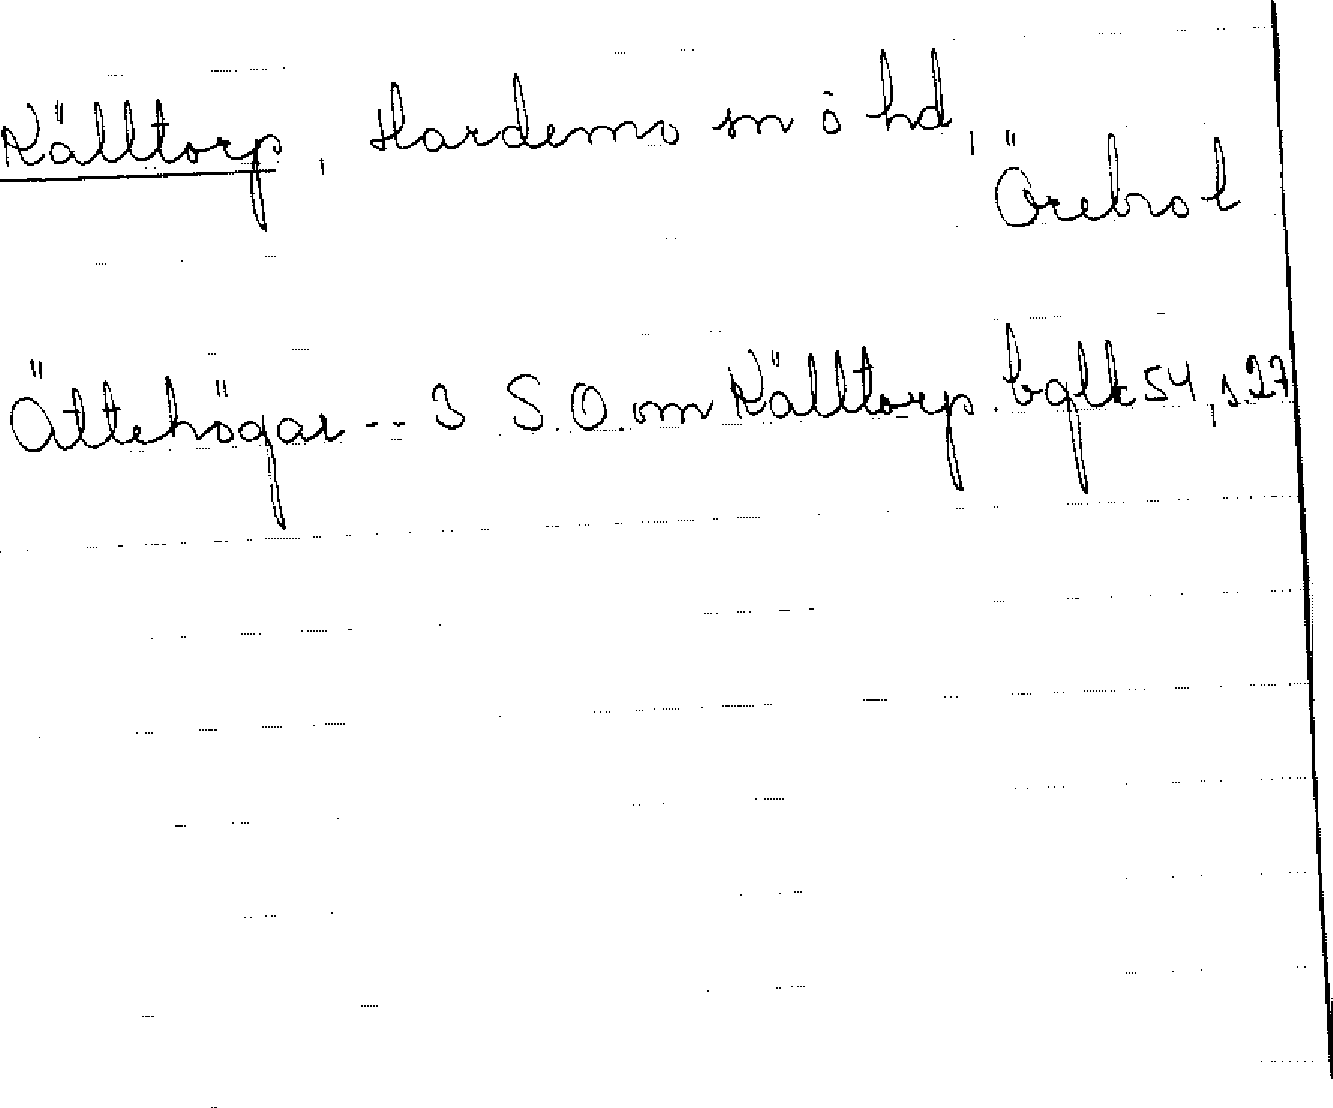 Källtorp, Hardemo sn o hd,
Örebro l
Ättehögar -- 3 S.O. om Källtorp. bglk 54, s. 27